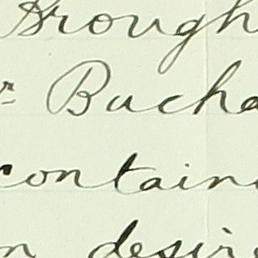 Brough
r Bucha
contain
n desire